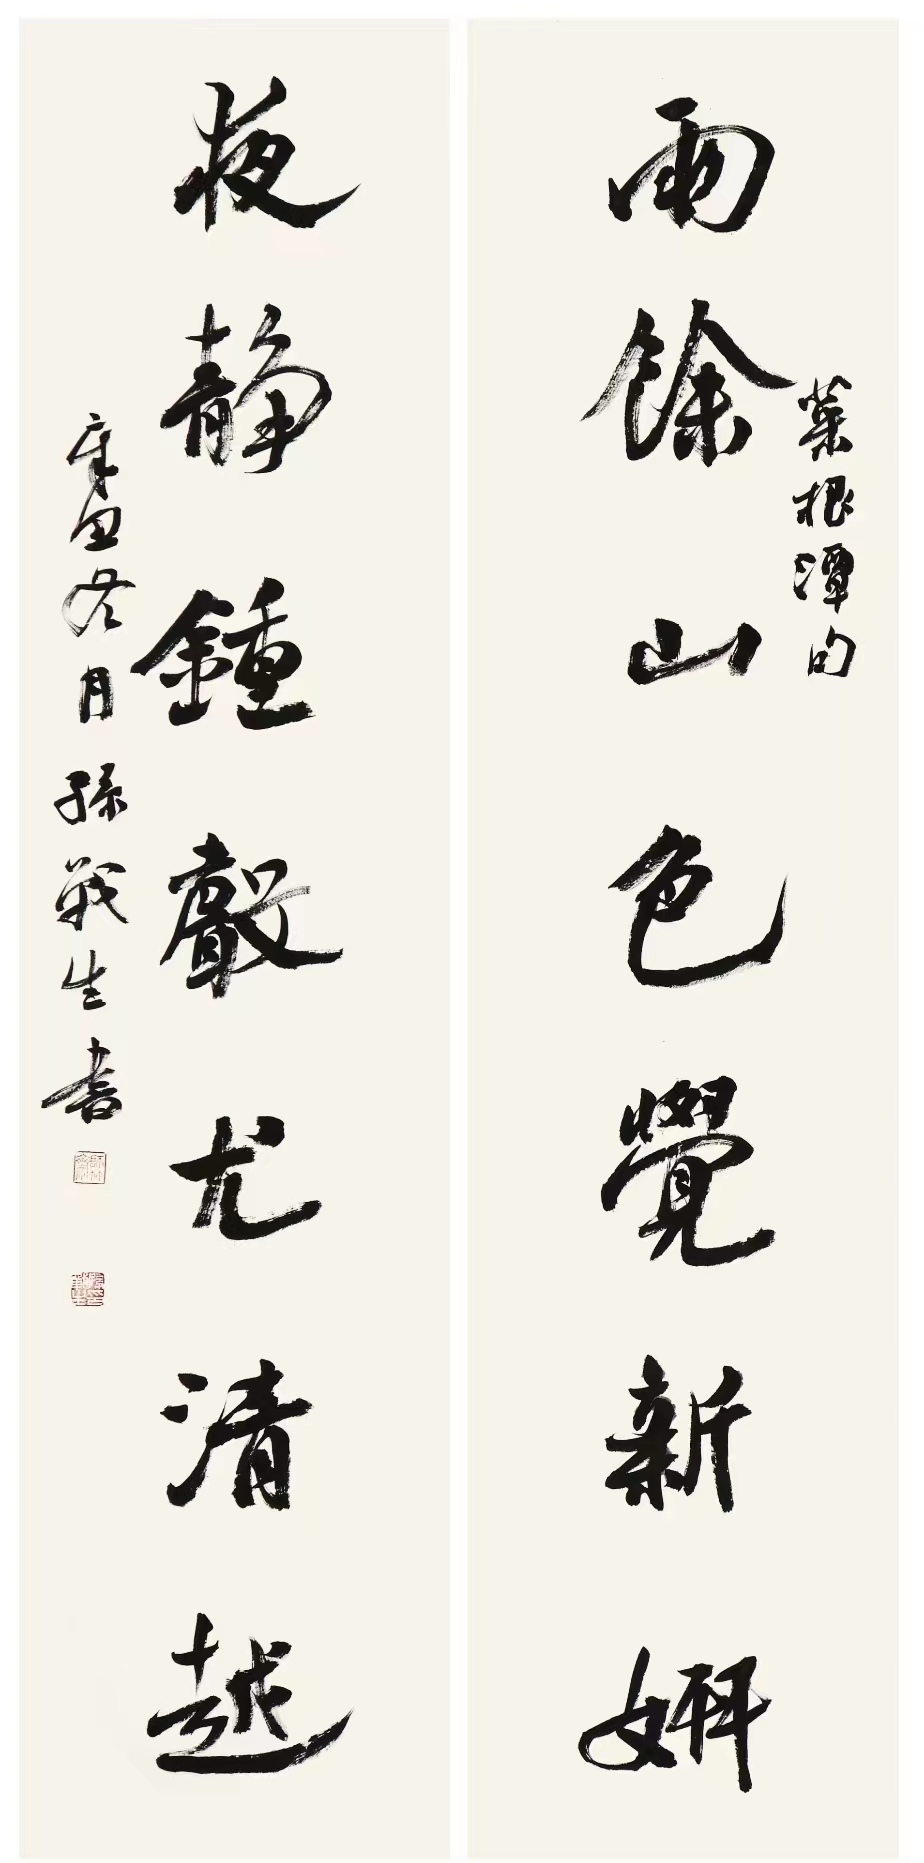 雨餘山色覺新妍
菜根潭句
夜静鍾聲尤清越
辛丑冬月孫戰生書